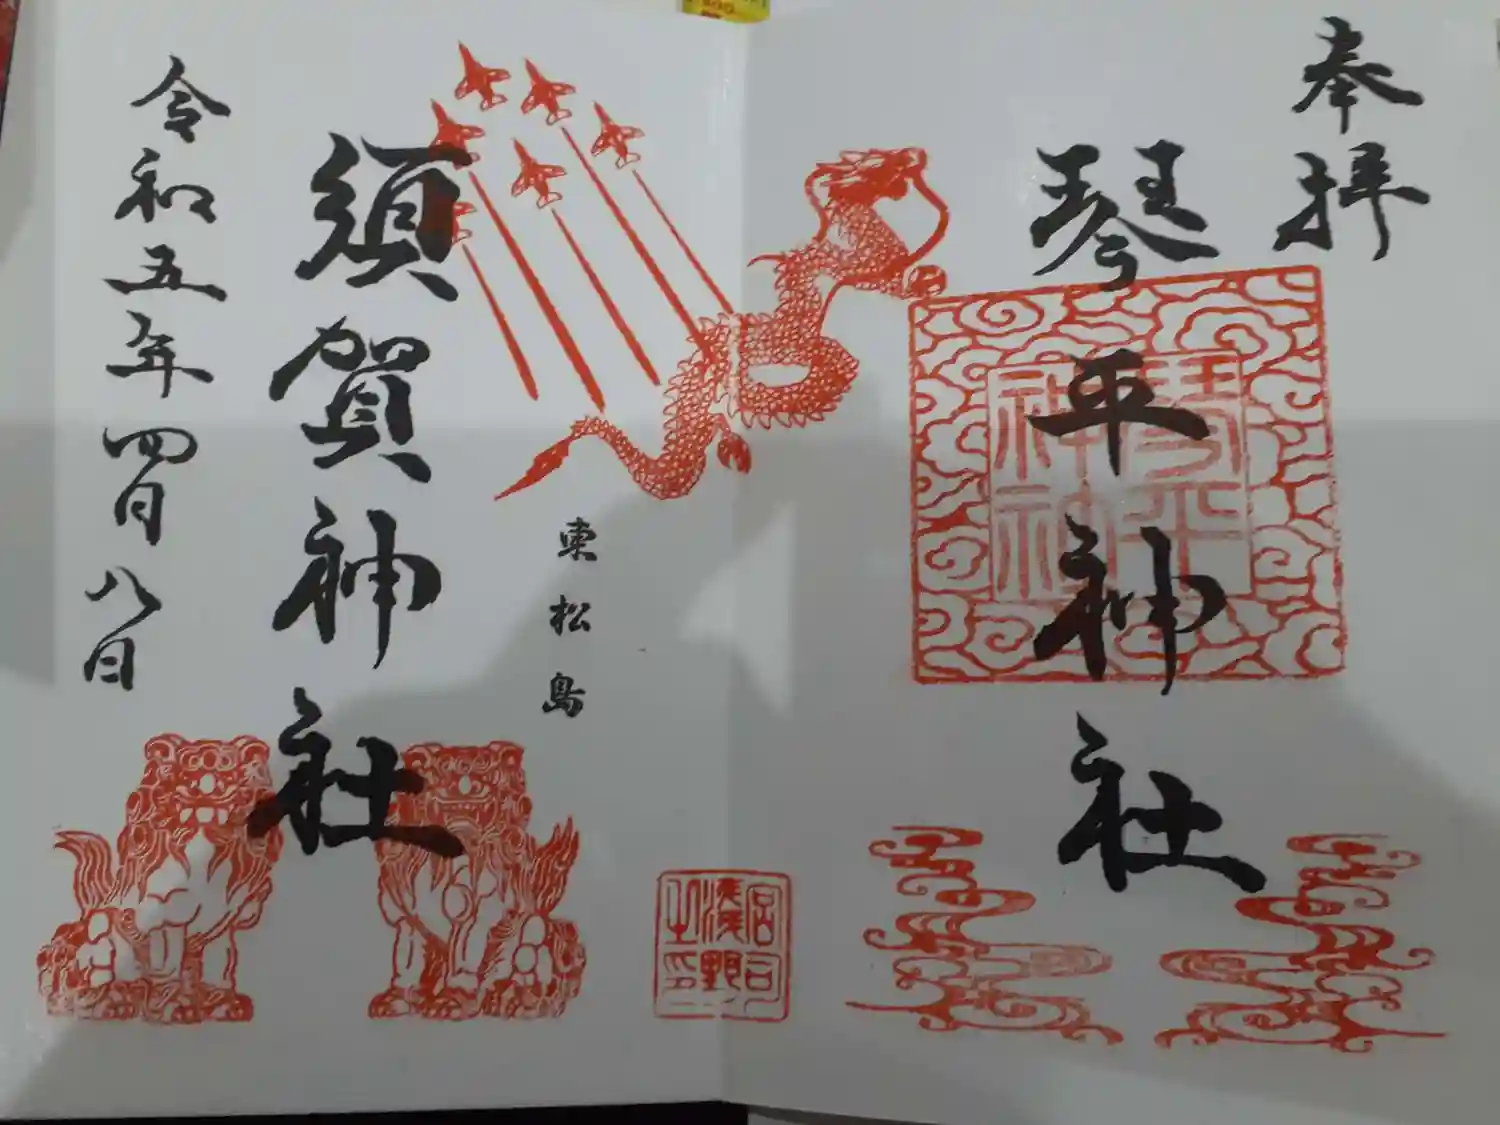 奉拝
琴平神社
琴平
神社
東松島
須賀神社
令和五年四月八日
宮司
漢野
之印